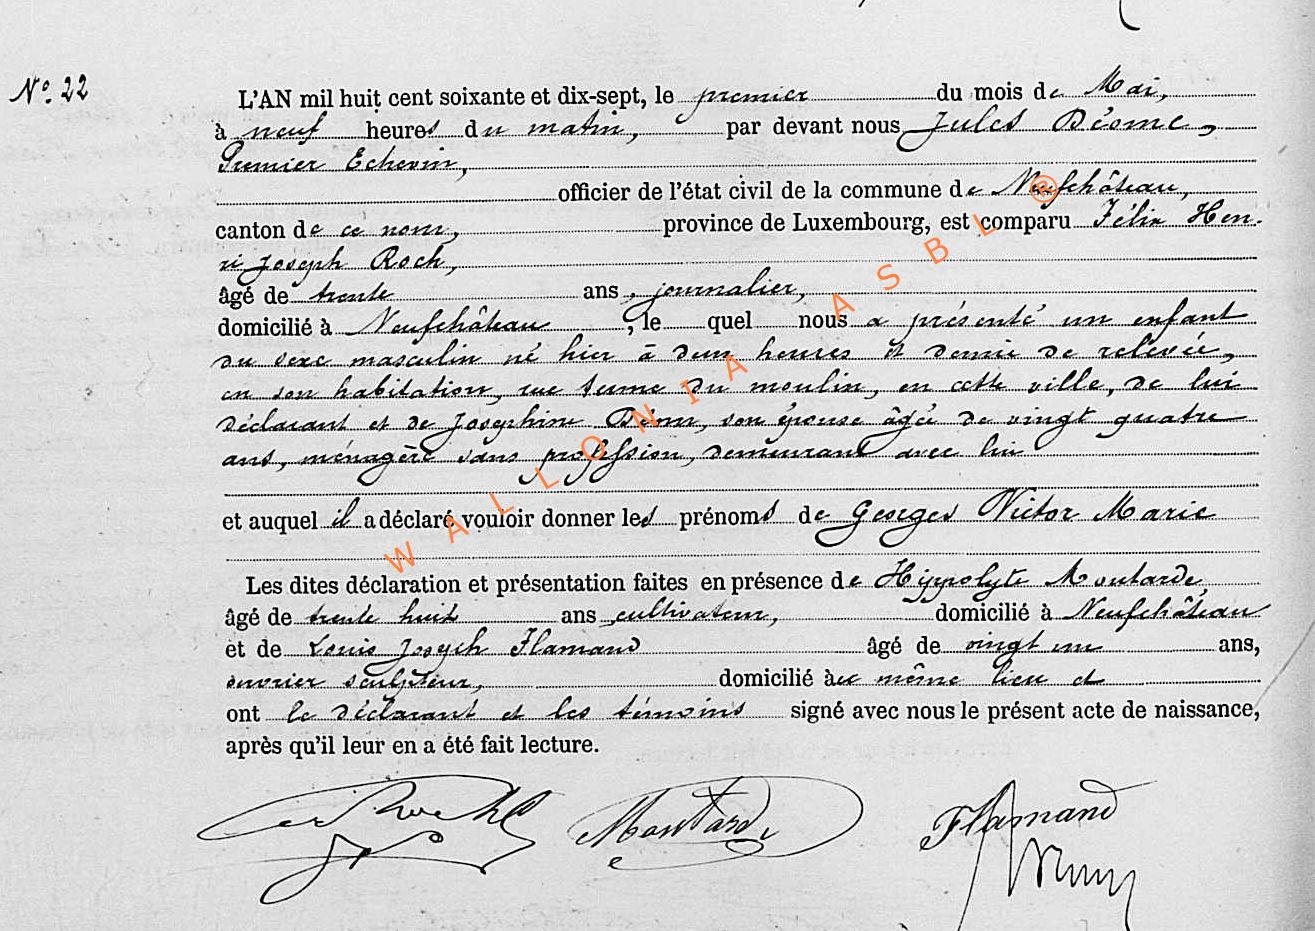 N° 22
L'AN mil huit cent soixante et dix-sept, le premier du mois de Mai,
à neuf heures du matin, par devant nous Jules
Premier Echevin,
officier de l'état civil de la commune de Neufchâteau,
canton de ce nom, province de Luxembourg, est comparu Félix Hen-
ri Joseph Roch,
âgé de trente ans, journalier,
domicilié à Neufchâteau, le quel nous a présenté un enfant
du sexe masculin né hier à deux heures et demie de relevée,
en son habitation, rue du moulin, en cette ville, de lui
déclarant et de Joséphine son épouse âgée de vingt quatre
ans, ménagère sans profession, demeurant avec lui
et auquel il a déclaré vouloir donner les prénoms de Georges Victor Marie
Les dites déclaration et présentation faites en présence de Hippolyte Moutarde,
âgé de trente huit ans cultivateur, domicilié à Neufchâteau
et de Louis Joseph Flamand âgé de vingt un ans,
ouvrier sculpteur, domicilié au même lieu et
ont le déclarant et les témoins signé avec nous le présent acte de naissance,
après qu'il leur en a été fait lecture.
Roch Moutarde Flamand
WALLONIA ASBL ®